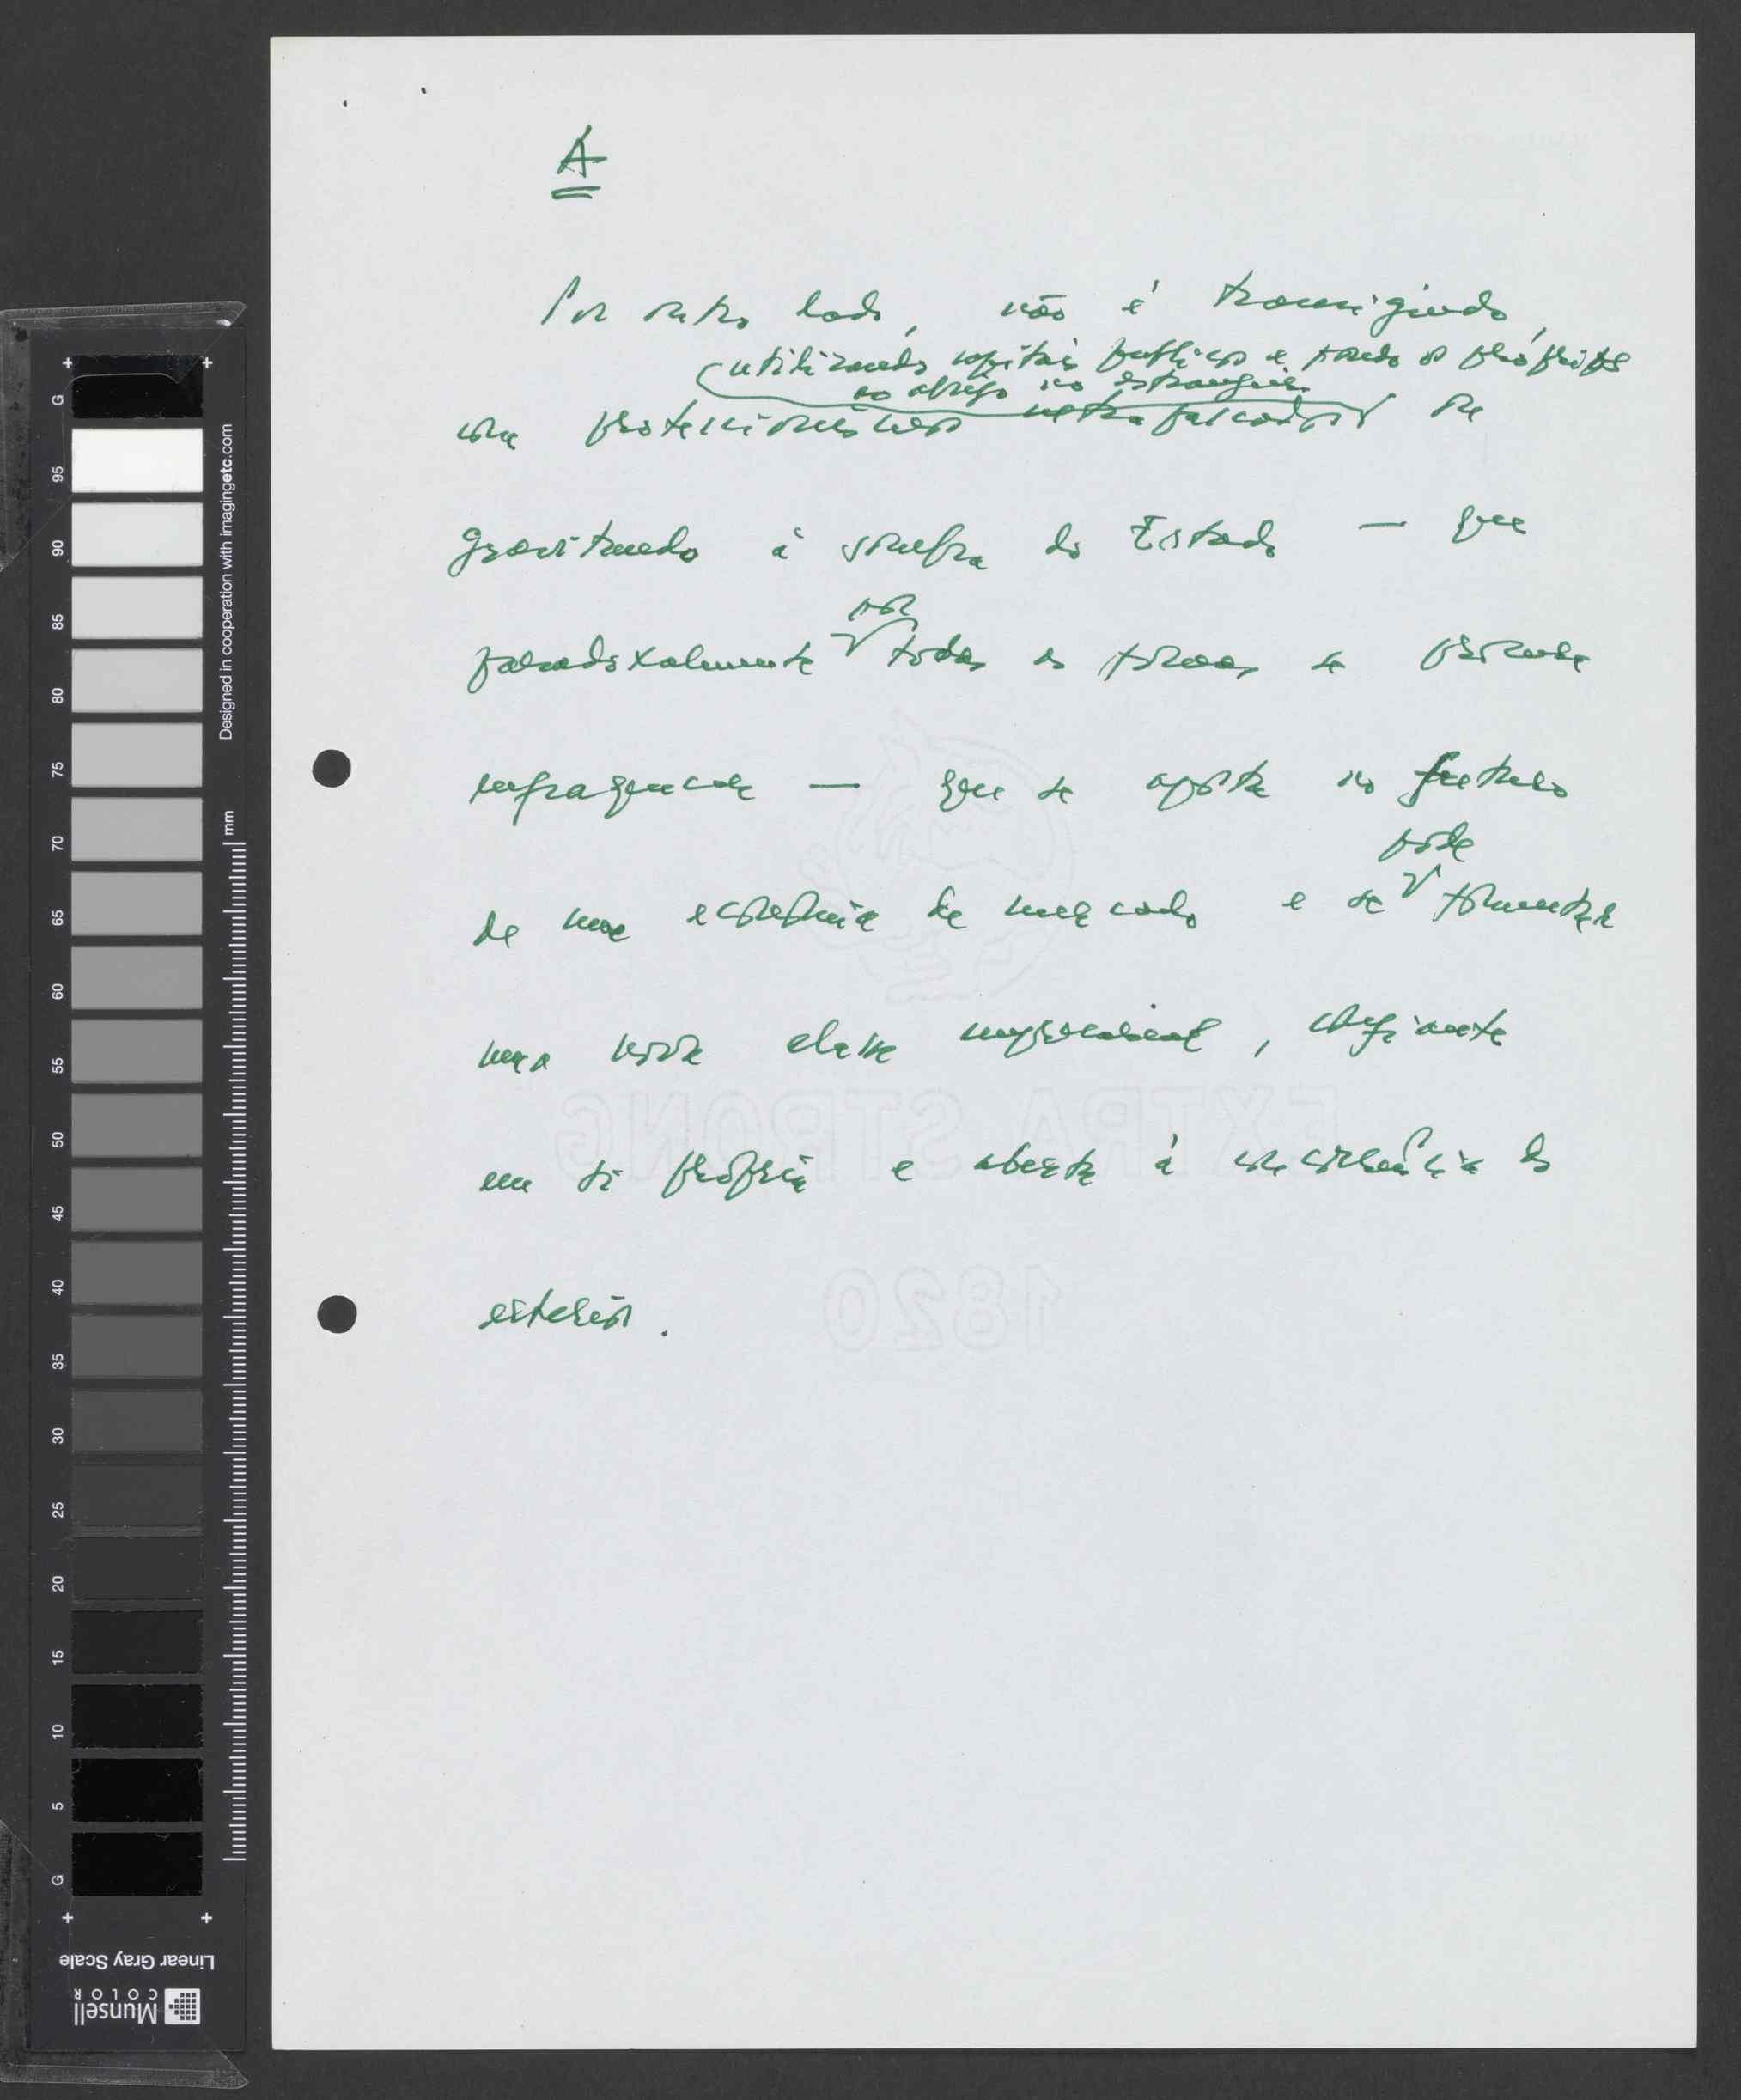 A
Por outro lado, não é transigindo,
utilizando capitais públicos e pondo os próprios
ao abrigo no estrangeiro
com protecionismos ultrapassados ou
gravitando à sombra do Estado — que
por
paradoxalmente todas as forças se procura
enfraquecer — que se aposta no futuro
de uma economia de mercado e se
pode
fomentar
uma nova classe empresarial, confiante
em si própria e aberta à concorrência do
exterior.
EXTRA STRONG
1820
G 95 90 85 80 75 70 65 60 55 50 45 40 35 30 25 20 15 10 5 G
mm
Designed in cooperation with imagingetc.com
Linear Gray Scale
Munsell
COLOR